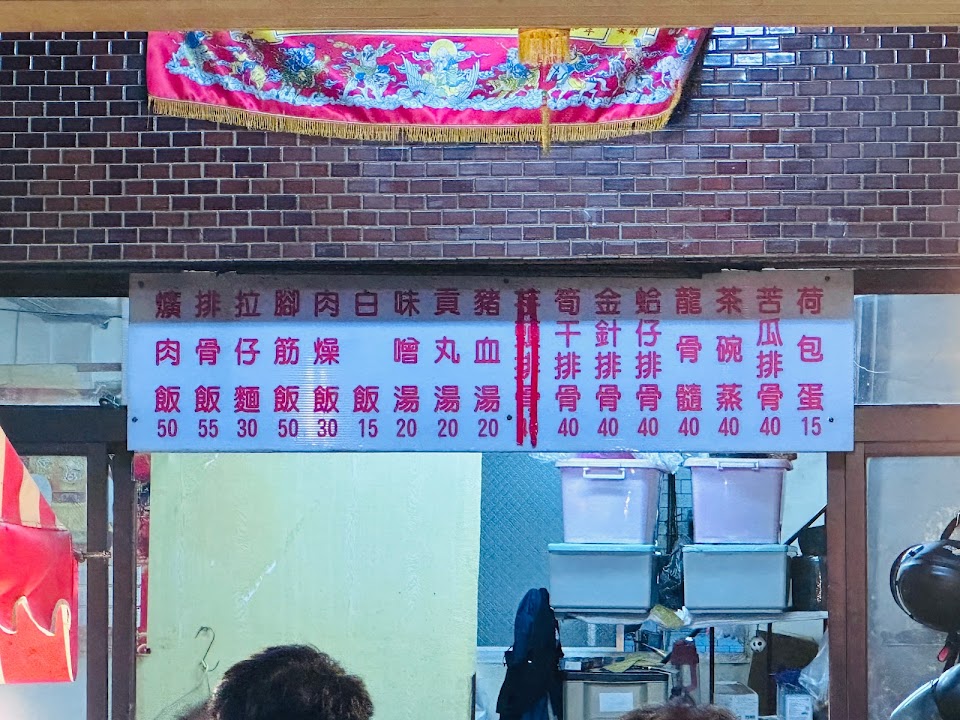 爌肉飯 50
排骨飯 55
拉仔麵 30
腳筋飯 50
肉燥飯 30
白飯 15
味噌湯 20
貢丸湯 20
豬血湯 20
筍干排骨 40
金針排骨 40
蛤仔排骨 40
龍骨髓 40
茶碗蒸 40
苦瓜排骨 40
荷包蛋 15